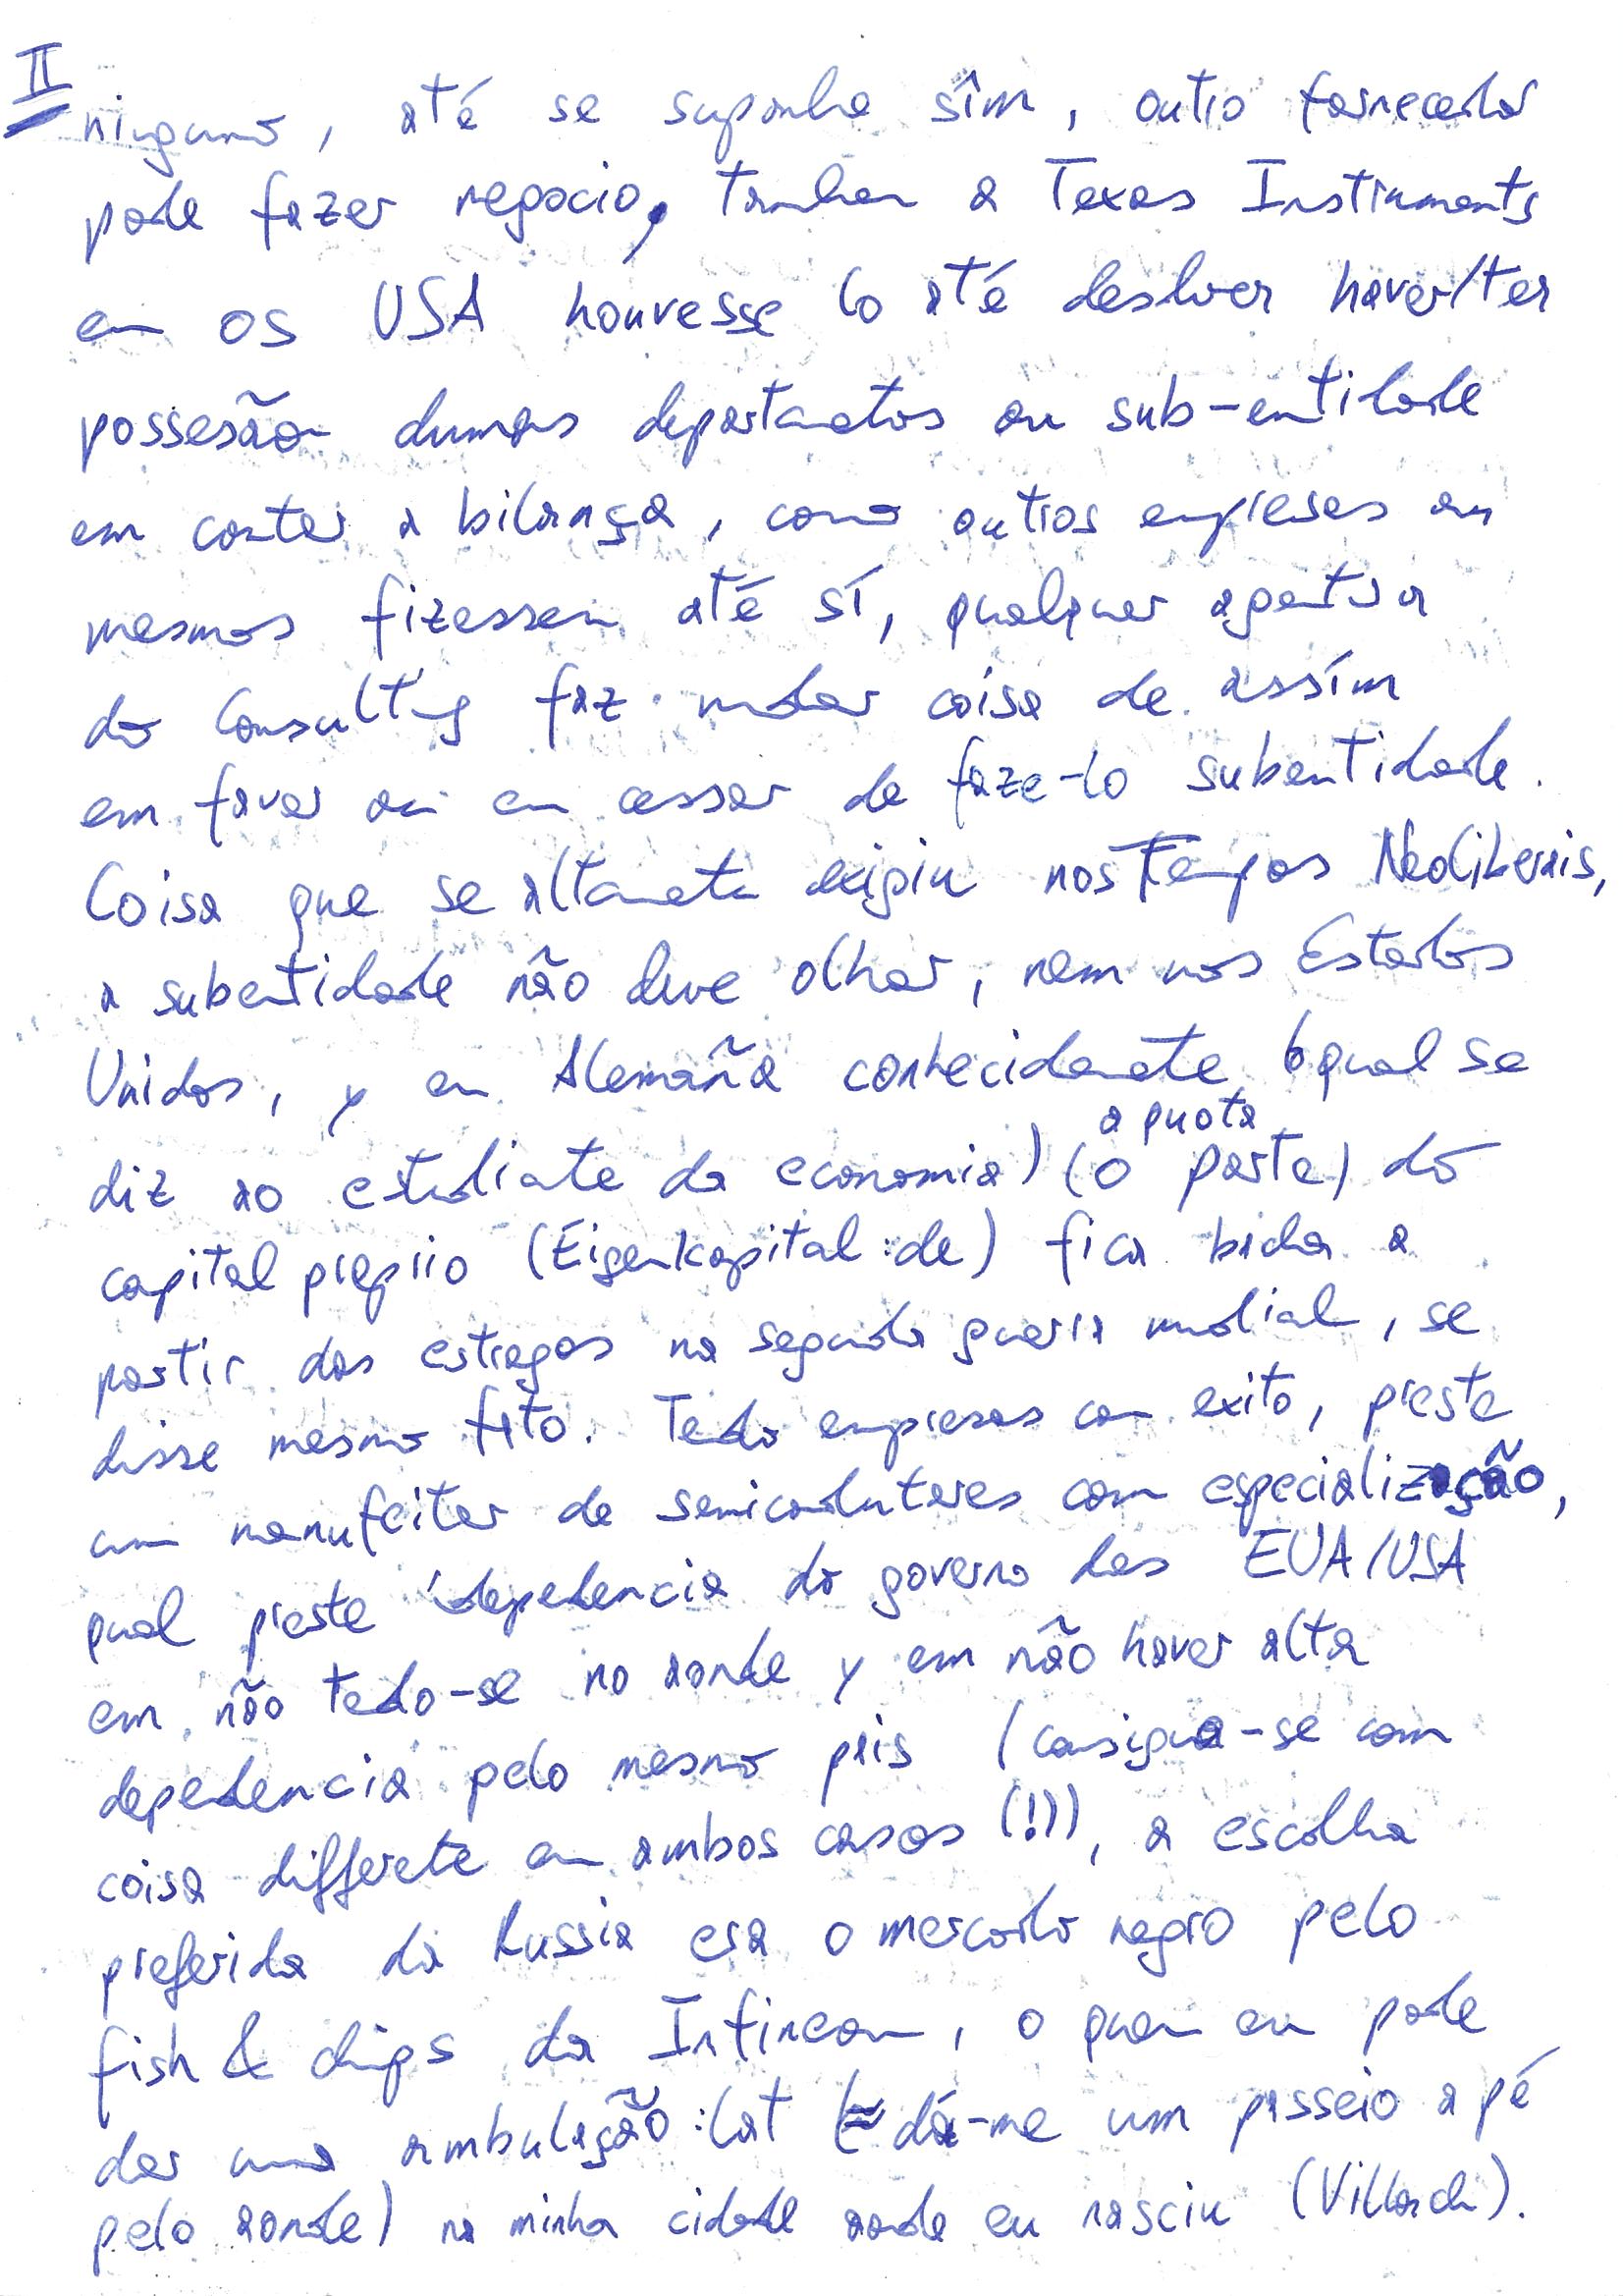 II
ninguno, até se suponha sîm, outro fornecedor
pode fazer negocio, tamben a Texas Instruments
en os USA houvesse lo até desluer haver/ter
possesão dumas departametos ou sub-entidade
em conter a bilança, como outros empresas ou
mesmos fizessen até sí, qualquer agentur
do Consulting faz mudar coisa de assím
em favor ou en cessar de faze-lo subentidade.
Coisa que se altamete exigiu nos Tempos Neoliberais,
a subentidade não deve olhar, nem nos Estados
Unidos, y en Alemaña conhecidamete, (o qual se
diz ao estudiate da economia) (o parte) do
a quota
capital proprio (Eigenkapital :de) fica baixa a
partir dos estragos na segunda guerra mudial, se
disse mesmo fato. Tedo empresas con exito, preste
um manufeiter de semicodutores com especialização,
qual preste idepedencia do governo das EUA/USA
em não tedo-se no aonde y em não haver alta
depedencia pelo mesmo pais (consigua-se com
coisa differete en ambos casos (!)), a escolha
preferida da Russia era o mercado negro pelo
fish & chips da Infineon, o quen eu pode
dar uma ambulação :lat (≈ dá-me um passeio a pé
pelo aonde) na minha cidade aonde eu nasciu (Villach).